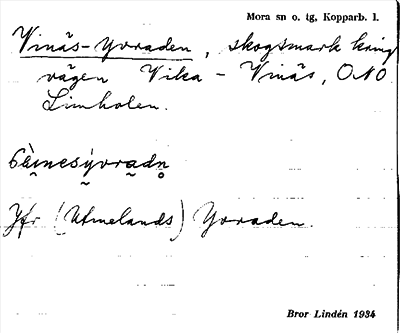 Mora sn o. tg, Kopparb. l.
Vinäs-Yvraden, skogsmark kring
vägen Vika - Vinäs, ONO
Limholen.
Jfr (Utmelands) Yvraden.
Bror Lindén 1934